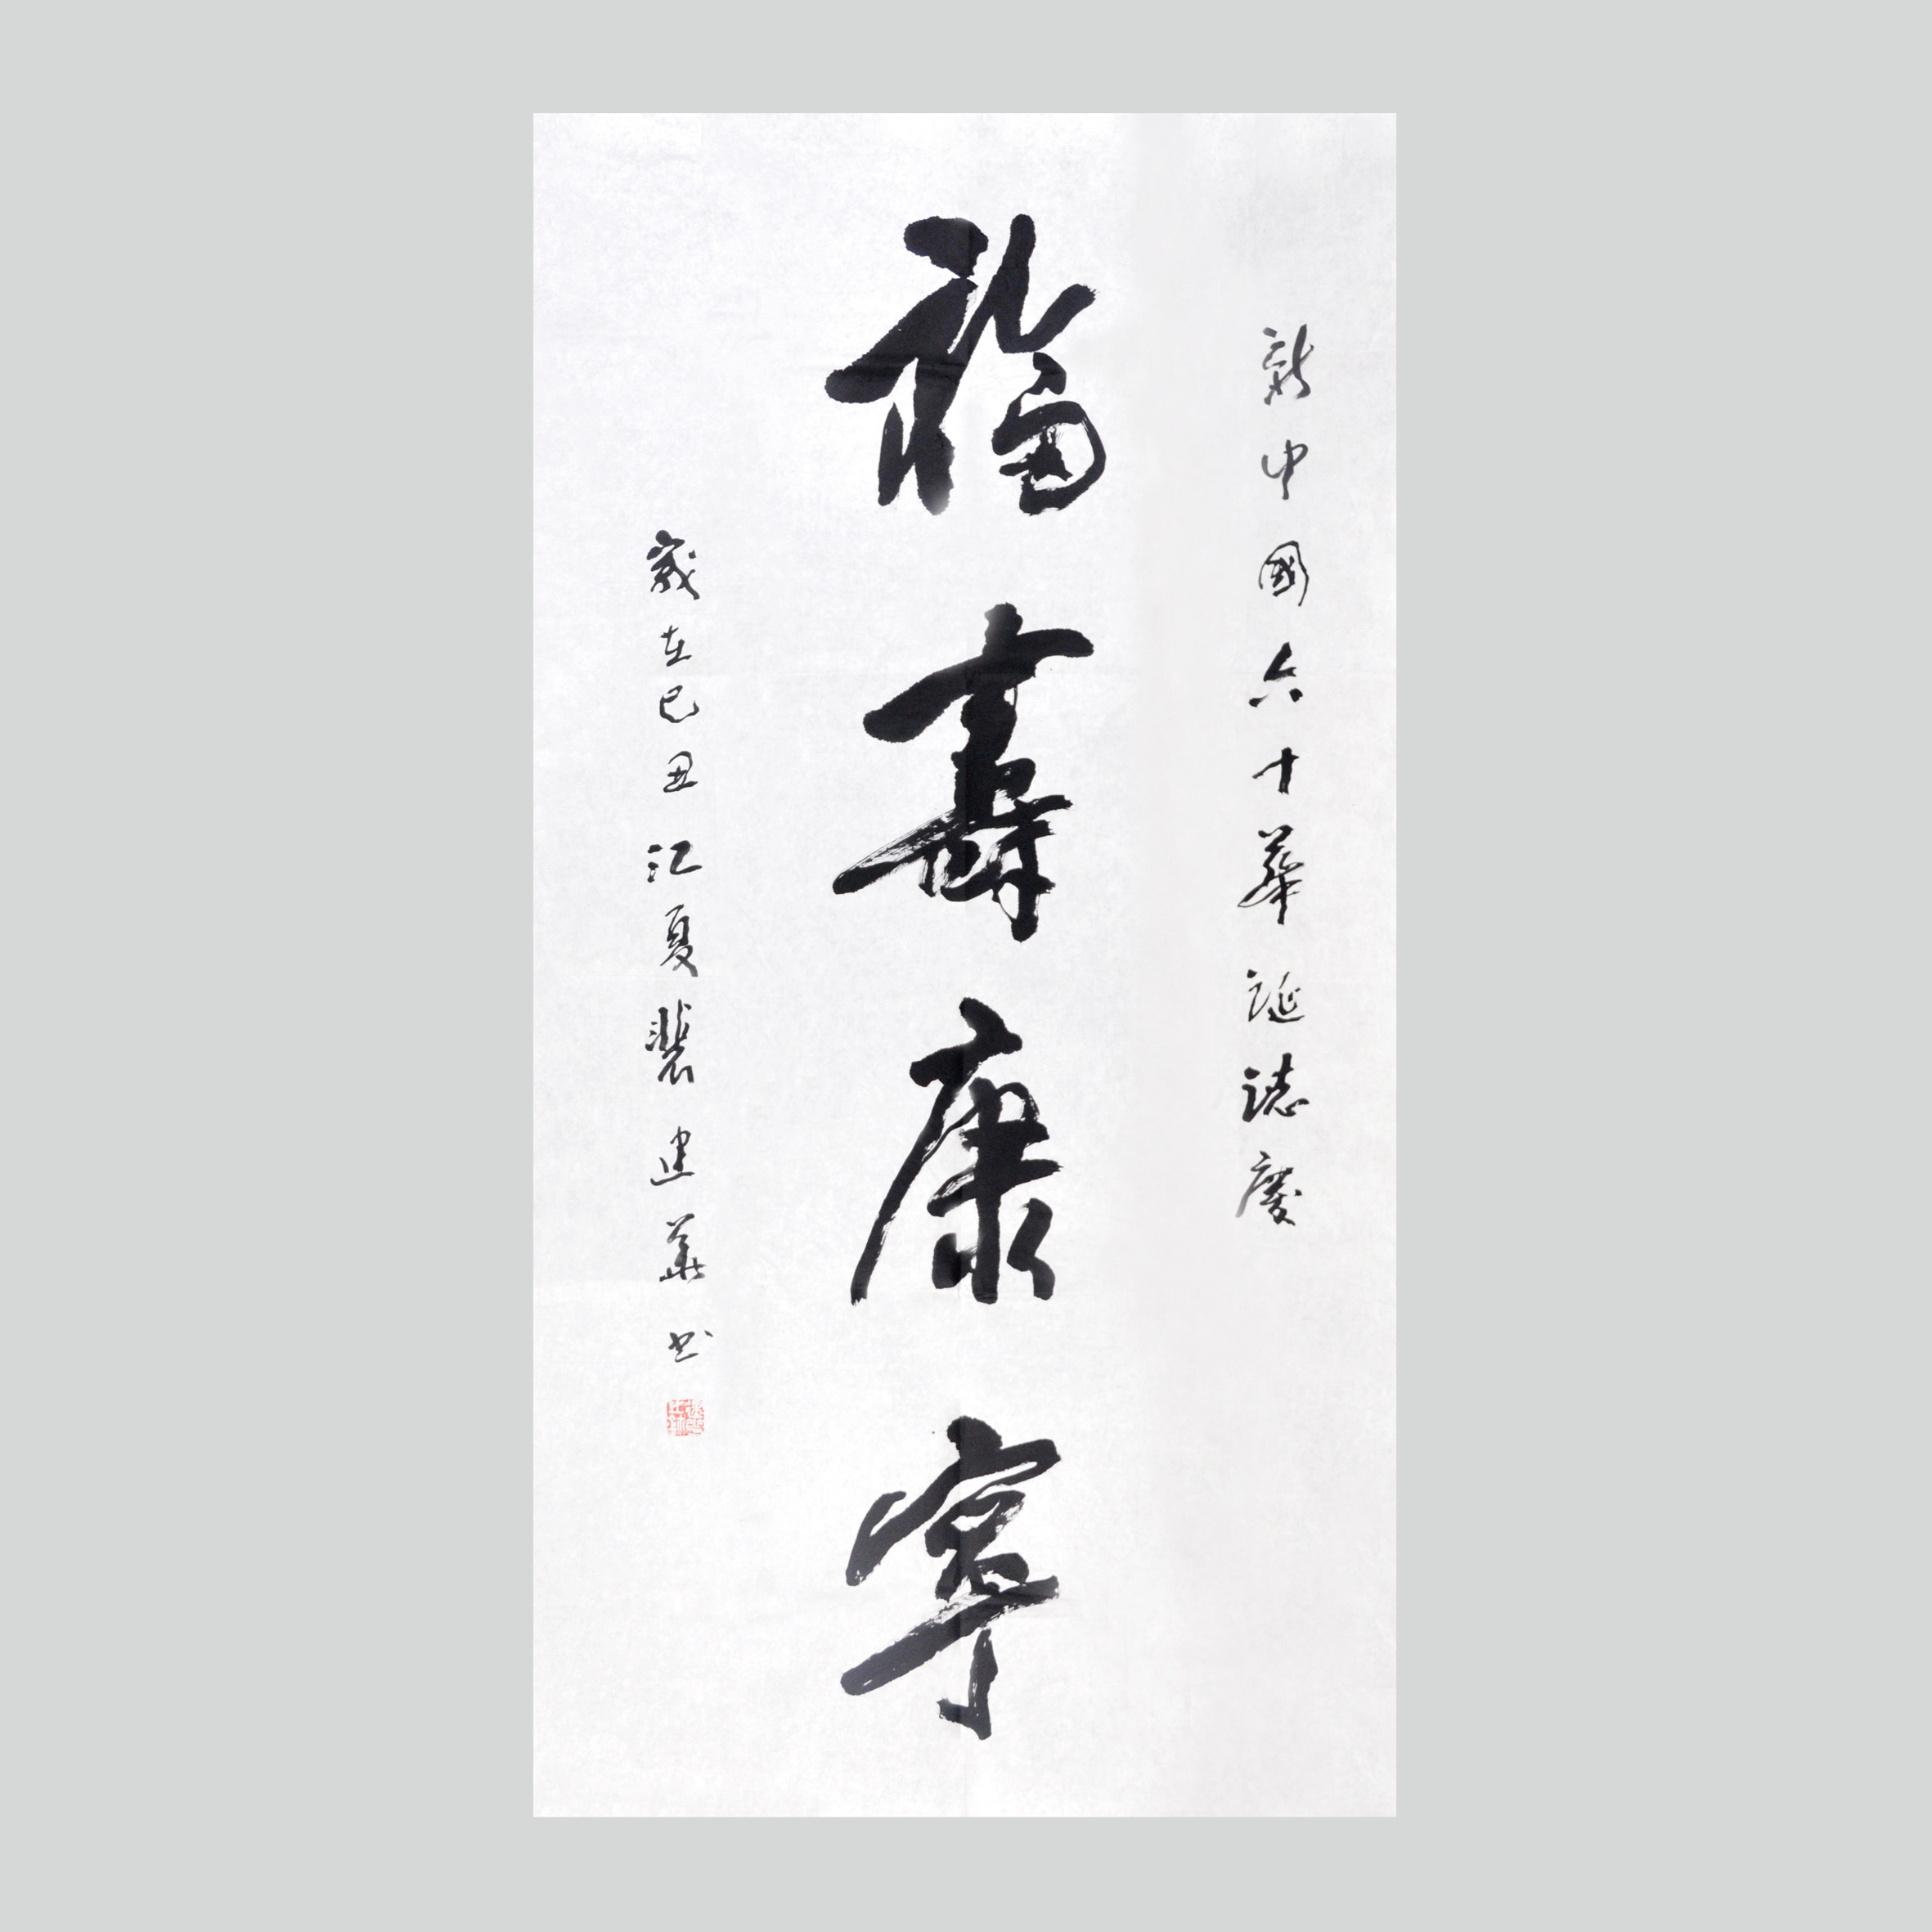 新中國六十華誕誌慶
福壽康寧
歲在己丑江夏裴建華书